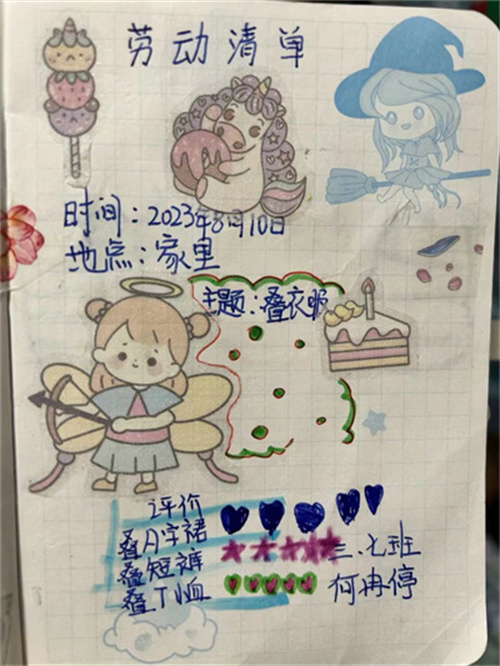 劳动清单
时间：2023年8月10日
地点：家里
主题：叠衣服
评价
叠A字裙
叠短裤 三.七班
叠T恤 何冉停